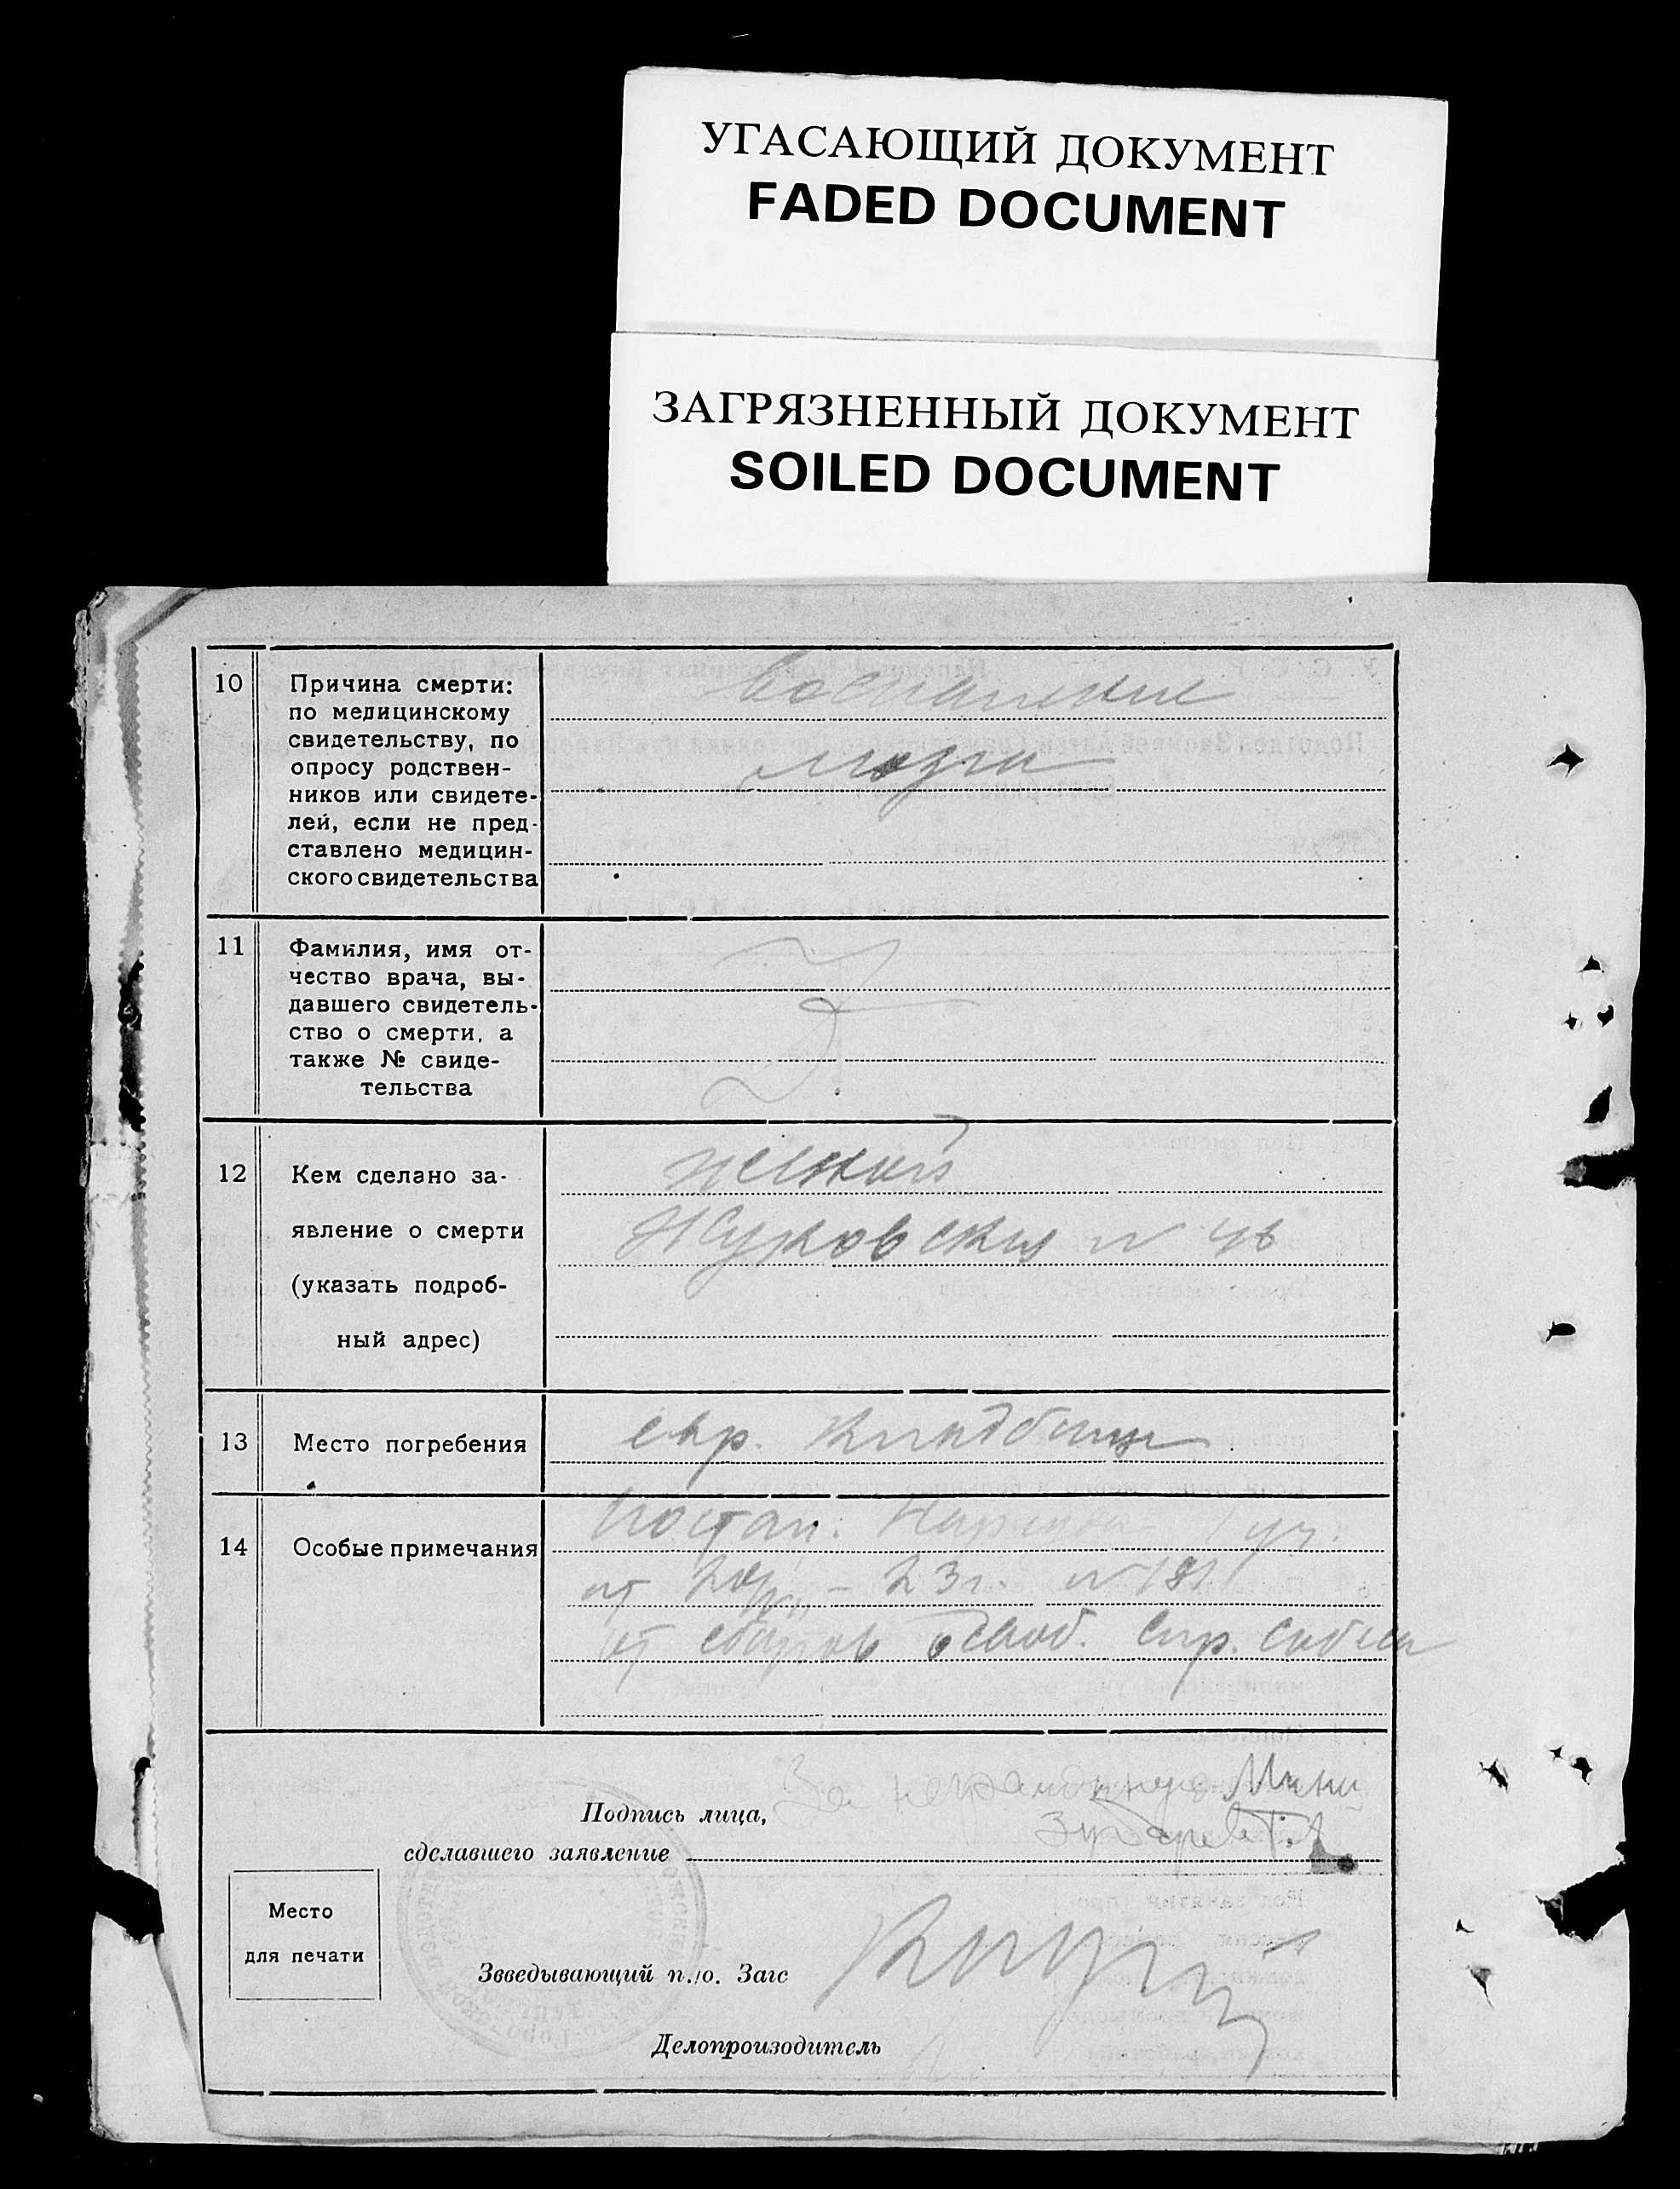 УГАСАЮЩИЙ ДОКУМЕНТ
FADED DOCUMENT
ЗАГРЯЗНЕННЫЙ ДОКУМЕНТ
SOILED DOCUMENT
10
Причина смерти:
по медицинскому
свидетельству, по
опросу родствен-
ников или свидете-
лей, если не пред-
ставлено медицин-
ского свидетельства
Воспаление
мозга
11
Фамилия, имя от-
чество врача, вы-
давшего свидетель-
ство о смерти, а
также № свиде-
тельства
12
Кем сделано за-
явление о смерти
(указать подроб-
ный адрес)
женой
Жуковский № 46
13
Место погребения
евр. кладбищ
14
Особые примечания
Постан.
от 23г. № 181
от сборов освоб. спр. собеса
Подпись лица,
сделавшего заявление
За неграмотную
Место
для печати
Звведывающий п./о. Загс
Делопроизводитель